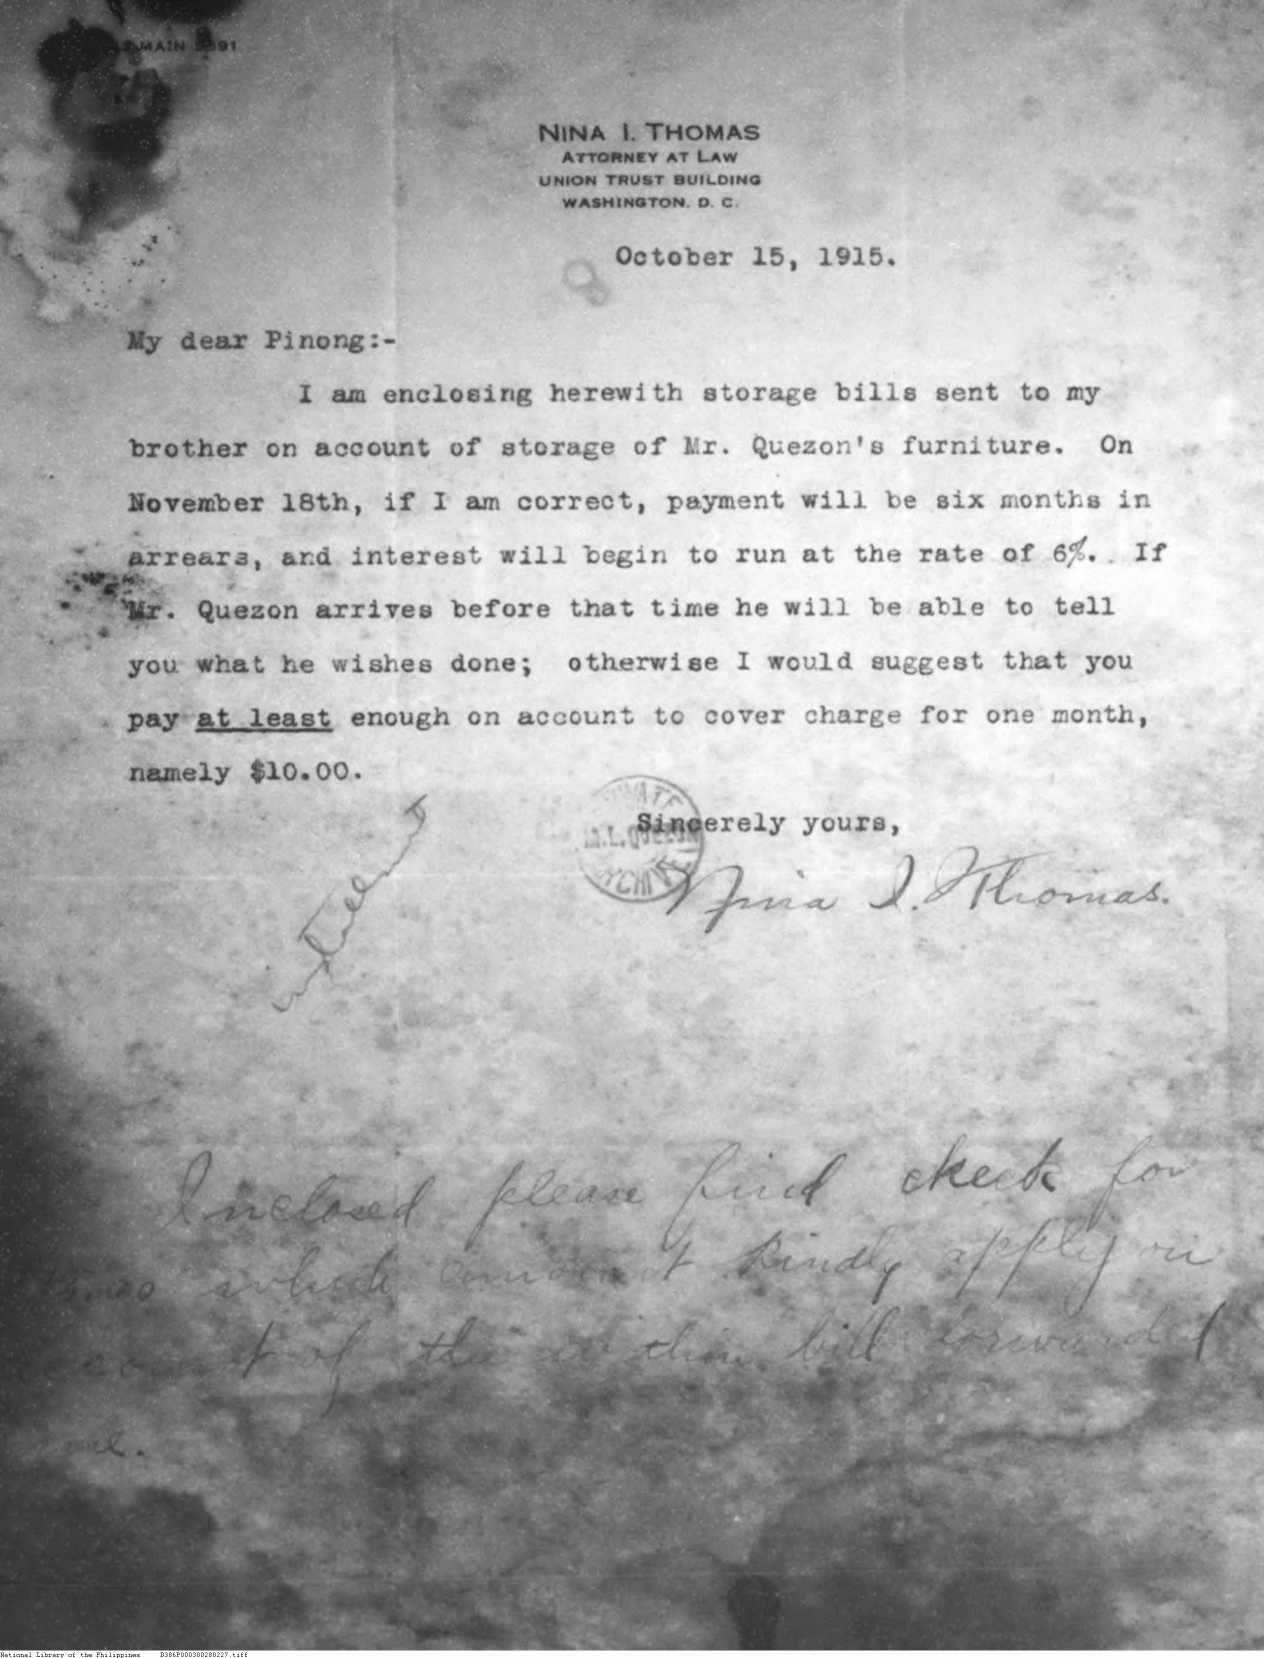 MAIN
NINA I. THOMAS
ATTORNEY AT LAW
UNION TRUST BUILDING
WASHINGTON. D. C.
October 15, 1915.
My dear Pinong:-
I am enclosing herewith storage bills sent to my
brother on account of storage of Mr. Quezon's furniture. On
November 18th, if I am correct, payment will be six months in
arrears, and interest will begin to run at the rate of 6%. If
Mr. Quezon arrives before that time he will be able to tell
you what he wishes done; otherwise I would suggest that you
pay at least enough on account to cover charge for one month,
namely $10.00.
Sincerely yours,
M.L. QUEZON
Nina I. Thomas.
Inclosed please find check for
which amount kindly apply on
of the within bill forwarded
National Library of the Philippines D386P000300280227.tiff